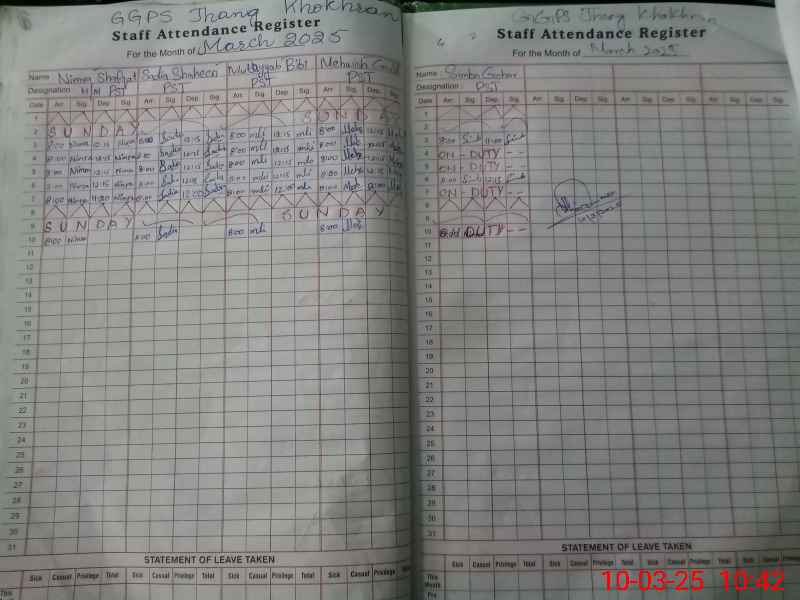 GGPS Jhang Khokhran
Staff Attendance Register
For the Month of March 2025
Name Nimra Shafqat Sadia Shaheen Mutayyab Bibi Mehwish
Designation H M PST PST PST PST
Date Arr Sig Dep Sig Arr Sig Dep Sig Arr Sig Dep Sig Arr Sig Dep Sig
1
2 SUNDAY SUNDAY
3 8:00 Nimra 12:15 Nimra 8:00 Sadia 12:15 Sadia 8:00 mli 12:15 mli 8:00 12:15
4 8:00 Nimra 12:15 Nimra 8:00 Sadia 12:15 Sadia 8:00 mli 12:15 mli 8:00 12:15
5 8:00 Nimra 12:15 Nimra 8:00 Sadia 12:15 Sadia 8:00 mli 12:15 mli 8:00 12:15
6 8:00 Nimra 12:15 Nimra 8:00 Sadia 12:15 Sadia 8:00 mli 12:15 mli 8:00 12:15
7 8:00 Nimra Nimra 8:00 Sadia 12:00 Sadia 8:00 mli 12:00 mli 8:00 12:00
8
9 SUNDAY SUNDAY
10 8:00 Nimra 8:00 Sadia 8:00 mli 8:00
11
12
13
14
15
16
17
18
19
20
21
22
23
24
25
26
27
28
29
30
31
STATEMENT OF LEAVE TAKEN
Sick Casual Privilege Total Sick Casual Privilege Total Sick Casual Privilege Total Sick Casual Privilege
This
GGPS Jhang Khokhran
Staff Attendance Register
For the Month of March 2025
Name
Designation PST
Date Arr Sig Dep Sig Arr Sig Dep Sig Arr Sig Dep Sig Arr Sig Dep Sig
1
2
3 8:00
4 ON - DUTY - -
5 8:00 12:15
6 ON - DUTY - -
7 ON - DUTY - -
8
9
10 DUTY - -
11
12
13
14
15
16
17
18
19
20
21
22
23
24
25
26
27
28
29
30
31
STATEMENT OF LEAVE TAKEN
Sick Casual Privilege Total Sick Casual Privilege Total Sick Casual Privilege Total Sick Casual Privilege Total
This
Month
Pre
10-03-25 10:42